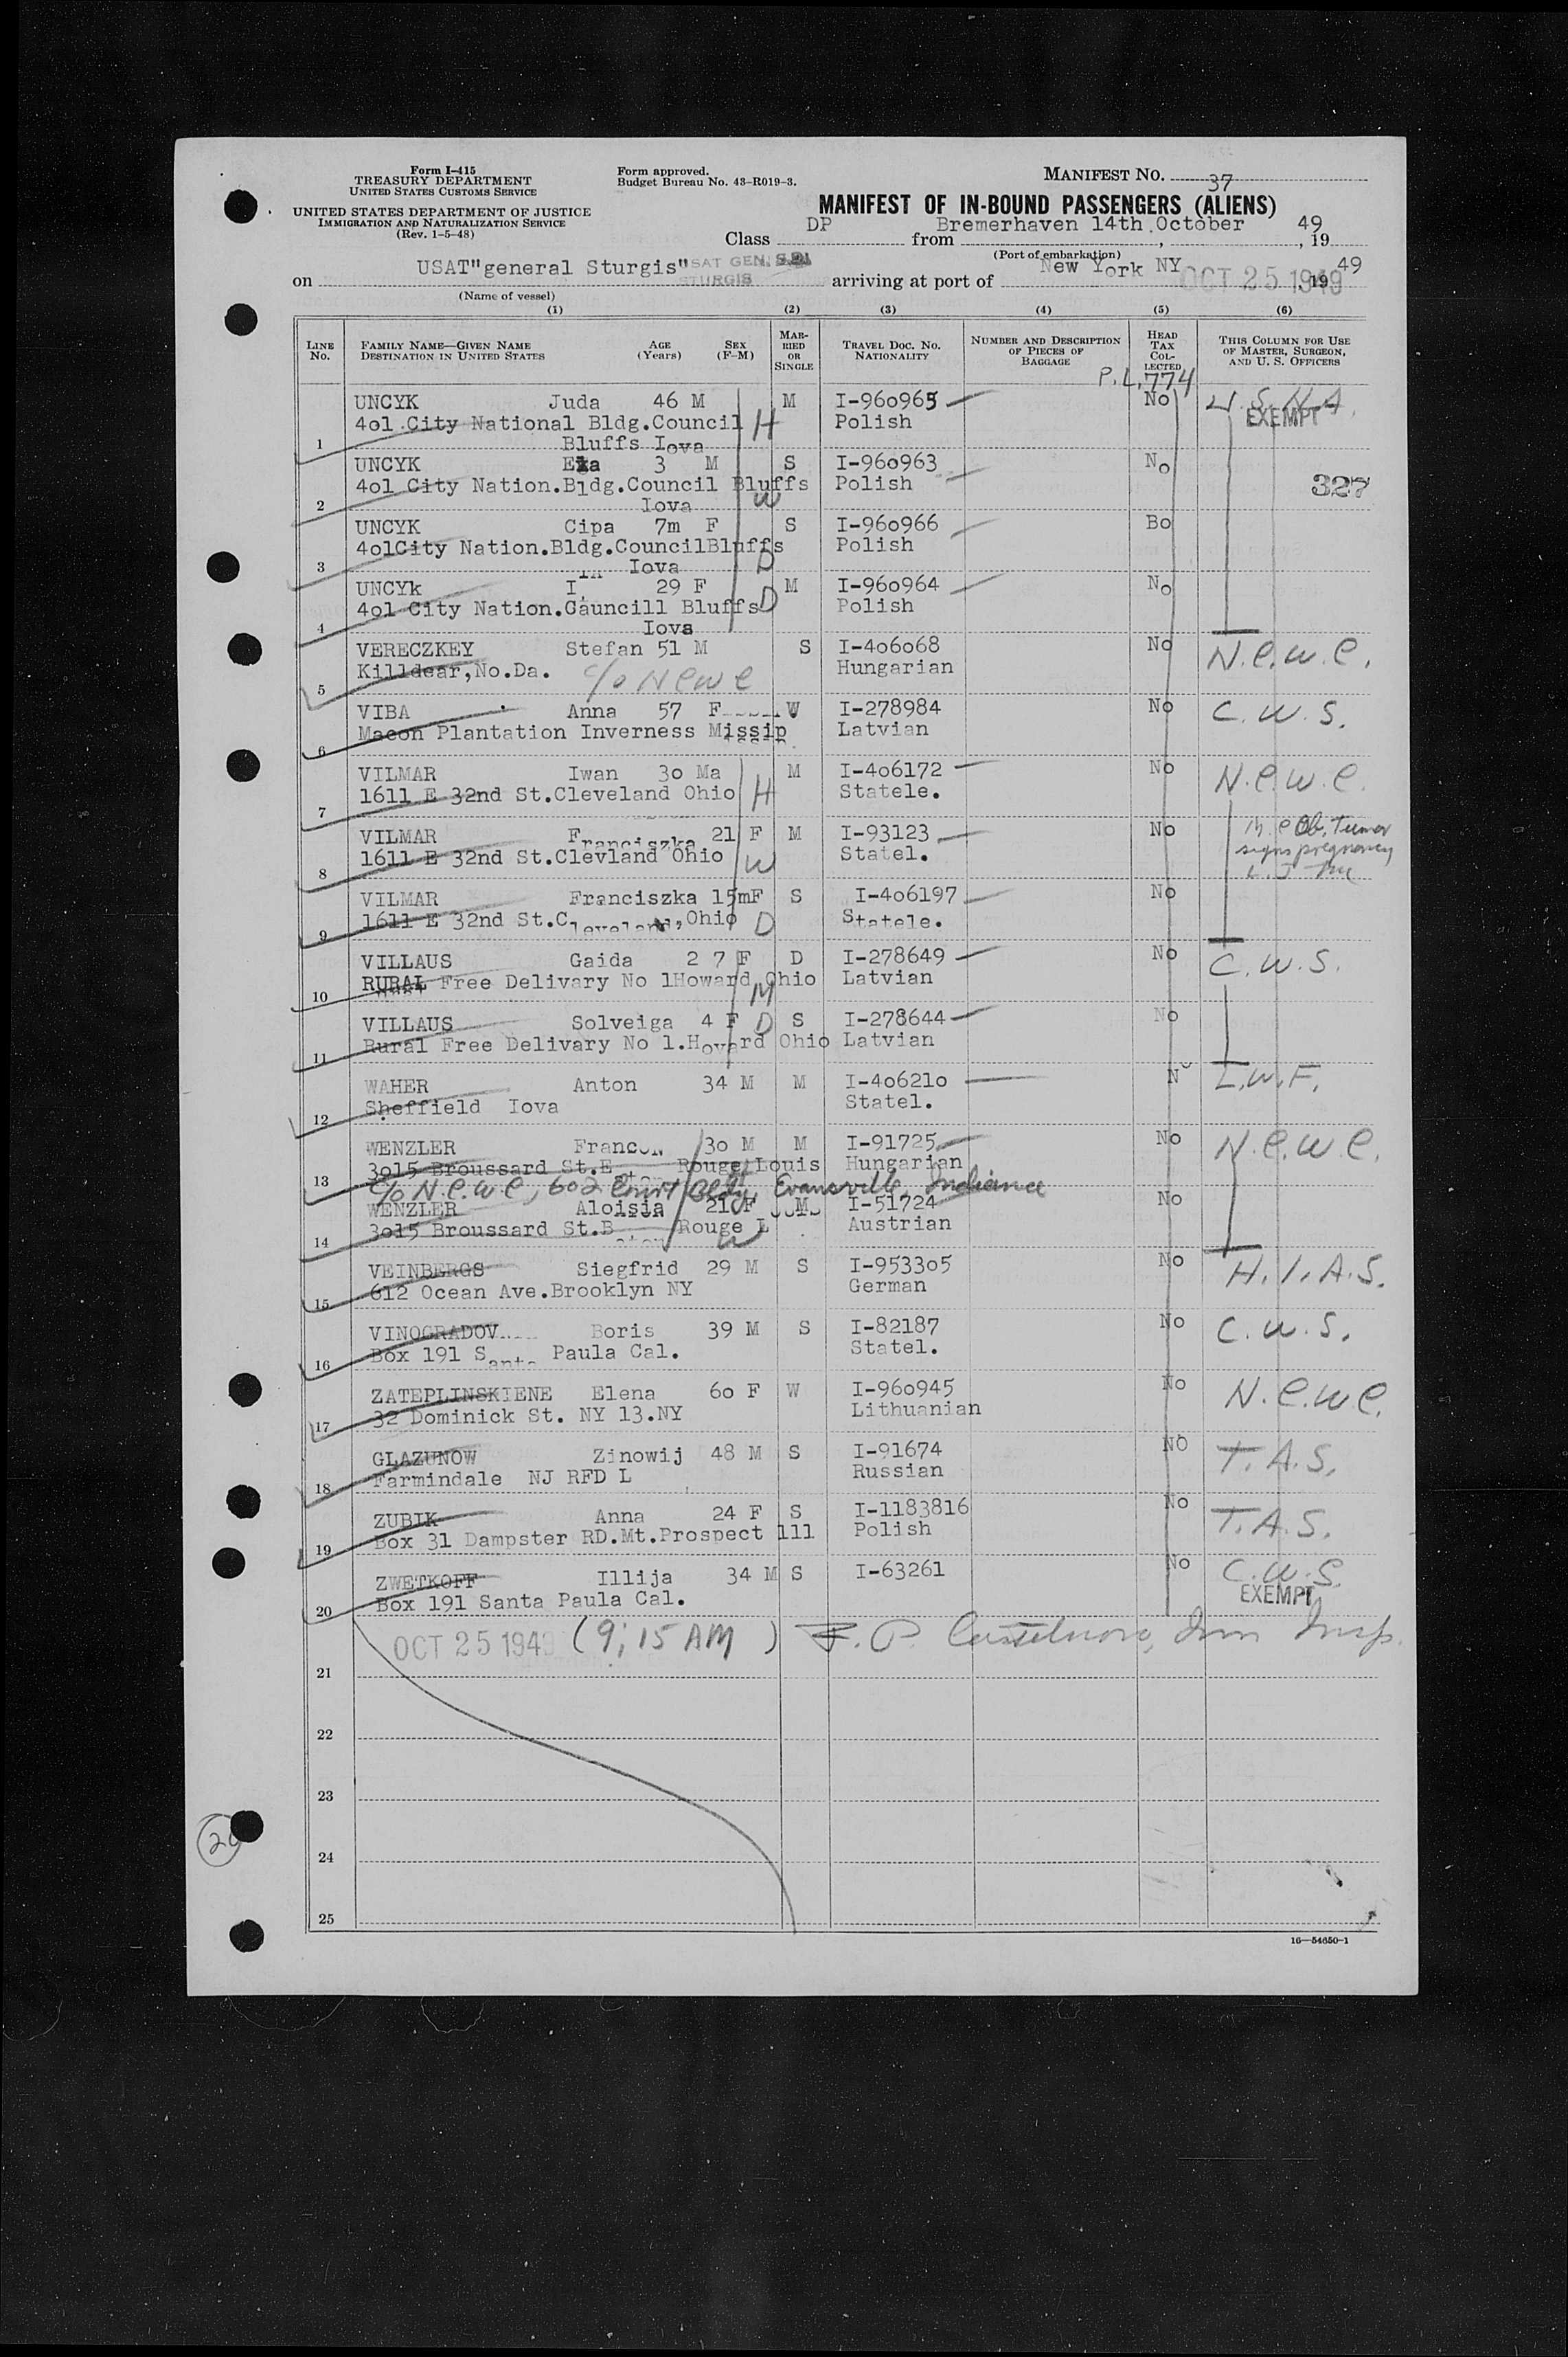 Form I-415
TREASURY DEPARTMENT
UNITED STATES CUSTOMS SERVICE
UNITED STATES DEPARTMENT OF JUSTICE
IMMIGRATION AND NATURALIZATION SERVICE
(Rev. 1-5-48)
Form approved.
Budget Bureau No. 43-R019-3.
MANIFEST NO. 37
MANIFEST OF IN-BOUND PASSENGERS (ALIENS)
Class DP from Bremerhaven 14th October, 1949
(Port of embarkation)
on USAT"general Sturgis" SAT GEN. S.D. STURGIS arriving at port of New York NY OCT 25 1949 1949
(Name of vessel)
(1) (2) (3) (4) (5) (6)
LINE No. FAMILY NAME—GIVEN NAME DESTINATION IN UNITED STATES AGE (Years) SEX (F-M) MARRIED OR SINGLE TRAVEL DOC. NO. NATIONALITY NUMBER AND DESCRIPTION OF PIECES OF BAGGAGE HEAD TAX COLLECTED THIS COLUMN FOR USE OF MASTER, SURGEON, AND U. S. OFFICERS
P.L. 774
UNCYK Juda 46 M M I-960965 No U.S.N.A.
4o1 City National Bldg.Council H Polish EXEMPT
1 Bluffs Iova
UNCYK 3 M S I-960963 No
4o1 City Nation.Bldg.Council Bluffs Polish 327
2 Iova W
UNCYK Cipa 7m F S I-960966 Bo
4o1City Nation.Bldg.CouncilBluffs Polish
3 Iova D
UNCYk 29 F M I-960964 No
4o1 City Nation.Gauncill Bluffs D Polish
4 Iova
VERECZKEY Stefan 51 M S I-4o6o68 No N.C.W.C.
5 Killdear,No.Da. c/o NCWC Hungarian
VIBA Anna 57 F W I-278984 No C.W.S.
6 Macon Plantation Inverness Missip Latvian
VILMAR Iwan 3o Ma M I-4o6172 No N.C.W.C.
7 1611 E 32nd St.Cleveland Ohio H Statele.
VILMAR Franciszka 21 F M I-93123 No
8 1611 E 32nd St.Clevland Ohio W Statel.
VILMAR Franciszka 15mF S I-4o6197 No
9 1611 E 32nd St.Cleveland,Ohio D Statele.
VILLAUS Gaida 2 7 F D I-278649 No C.W.S.
10 RURAL Free Delivary No 1Howard Ohio M Latvian
VILLAUS Solveiga 4 F D S I-278644 No
11 Rural Free Delivary No 1.Hovard Ohio Latvian
WAHER Anton 34 M M I-4o621o N L.W.F.
12 Sheffield Iova Statel.
WENZLER 3o M M I-91725 No N.C.W.C.
3o15 Broussard St. Rouge Louis Hungarian
13 c/o N.C.W.C, 602 Court Bldg, Evansville, Indiana
WENZLER Aloisia 21 F M I-51724 No
14 3o15 Broussard St.B Rouge L W Austrian
VEINBERGS Siegfrid 29 M S I-9533o5 No H.I.A.S.
15 612 Ocean Ave.Brooklyn NY German
VINOGRADOV Boris 39 M S I-82187 No C.W.S.
16 Box 191 Santa Paula Cal. Statel.
ZATEPLINSKIENE Elena 6o F W I-960945 No N.C.W.C.
17 32 Dominick St. NY 13.NY Lithuanian
GLAZUNOW Zinowij 48 M S I-91674 NO T.A.S.
18 Farmindale NJ RFD L Russian
ZUBIK Anna 24 F S I-1183816 No T.A.S.
19 Box 31 Dampster RD.Mt.Prospect 111 Polish
ZWETKOFF Illija 34 M S I-63261 No C.W.S.
20 Box 191 Santa Paula Cal. EXEMPT
OCT 25 1949 (9:15 AM)
21
22
23
24
25
16—54650-1